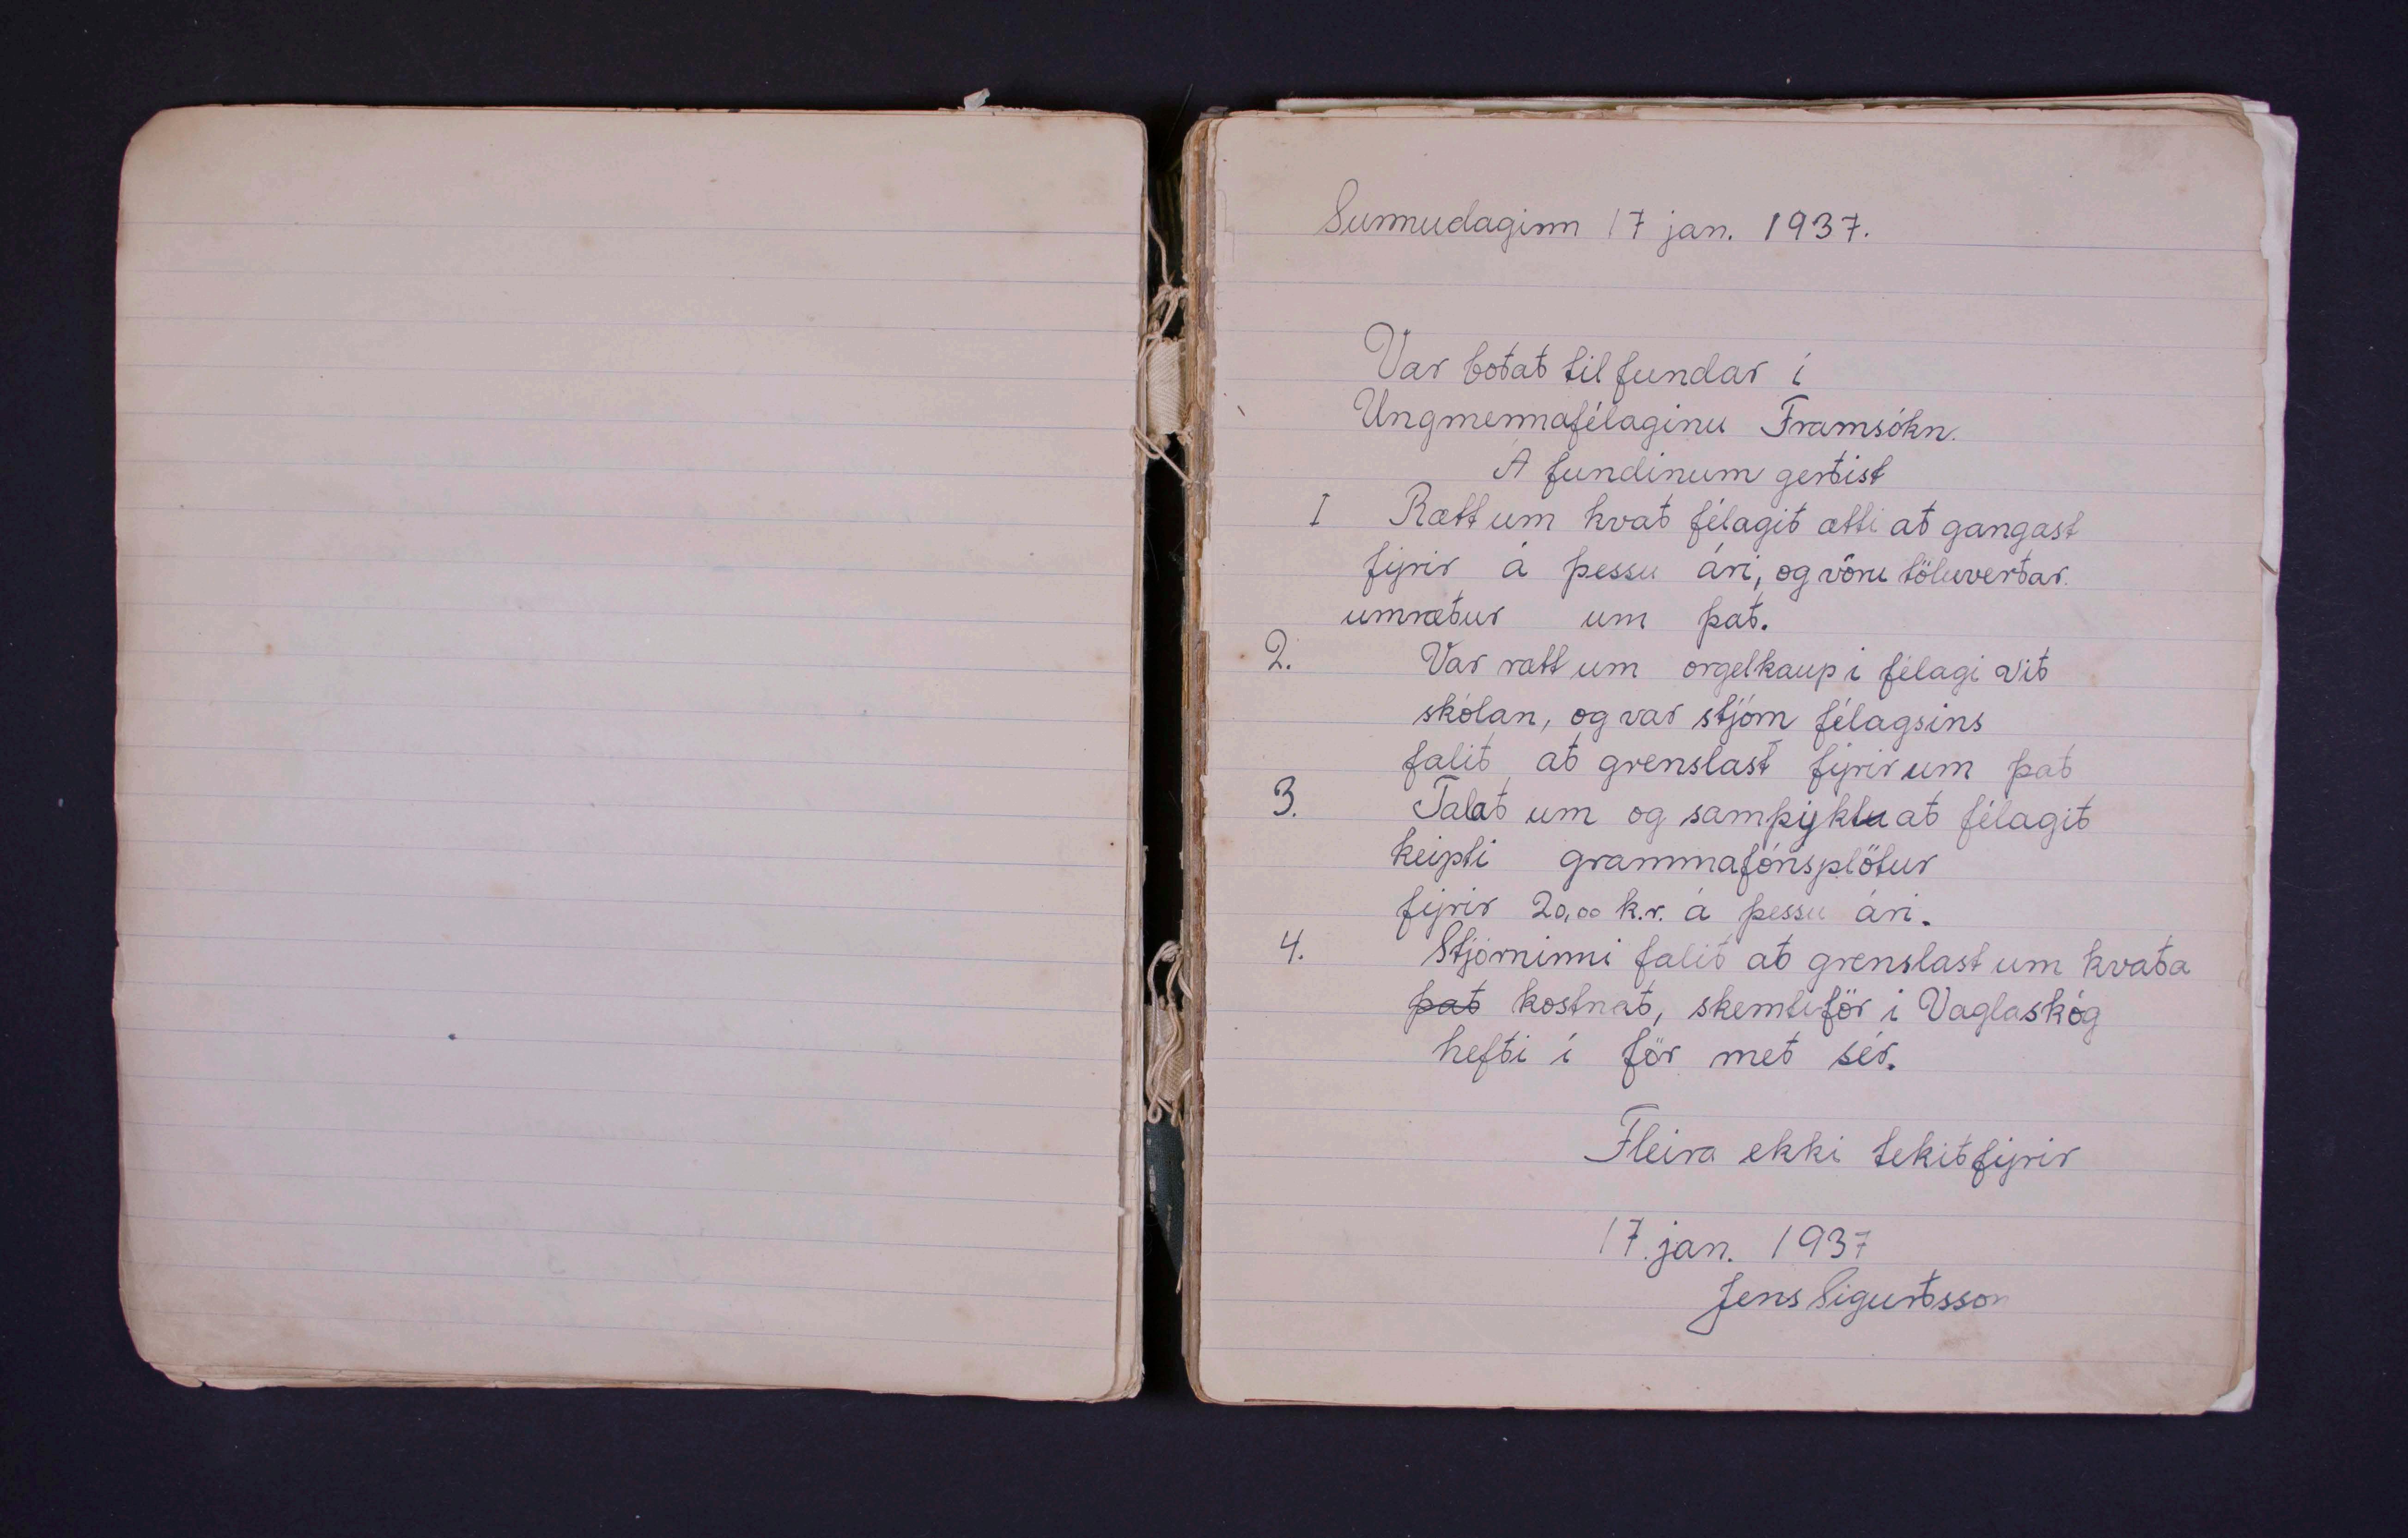 Sunnudaginn 17 jan. 1937.
Var boðað til fundar í
Ungmennafélaginu Framsókn.
Á fundinum gerðist
I Rætt um hvað félagið ætti að gangast
fyrir á þessu ári, og vóru töluverðar
umræður um það.
2. Var rætt um orgelkaup í félagi við
skólan, og var stjórn félagsins
falið að grenslast fyrir um það
3. Talað um og samþyktu að félagið
keipti grammafónsplötur
fyrir 20,00 k.r. á þessu ári.
4. Stjórninni falið að grenslast um hvaða
það kostnað, skemtiför í Vaglaskóg
hefði í för með sér.
Fleira ekki tekið fyrir
17. jan. 1937
Jens Sigurðsson